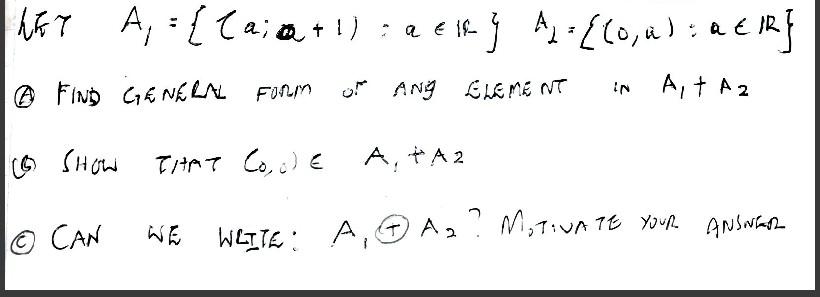 LET A₁ = { (a; a + 1) : a ∈ ℝ } A₂ = {(0, a) : a ∈ ℝ}
Ⓐ FIND GENERAL FORM OF ANY ELEMENT IN A₁ + A₂
Ⓑ SHOW THAT (0, 0) ∈ A₁ + A₂
Ⓒ CAN WE WRITE: A₁ ⊕ A₂? MOTIVATE YOUR ANSWER